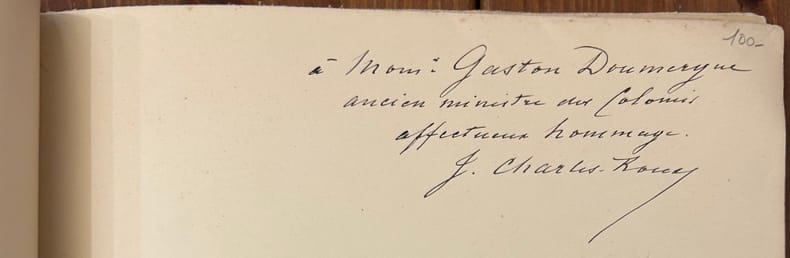 100-
à Mons: Gaston Doumergue
ancien ministre des Colonies
affectueux hommage.
J. Charles-Roux